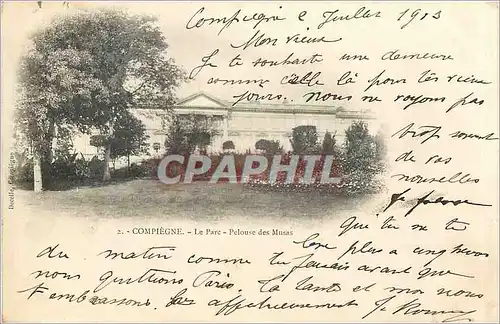 Compiègne 2 Juillet 1903
Mon vieux
Je te souhaite une demeure
comme celle là pour tes vieux
jours. nous ne voyons pas
trop souvent
de vos
nouvelles
Je pense
que tu ne te
lèves plus a cinq heures
du matin comme tu faisais avant que
nous quittions Paris. Ta tante et moi nous
t'embrassons affectueusement
CPARAMA
2. - COMPIÈGNE. - Le Parc - Pelouse des Musas
Decelle, Compiègne